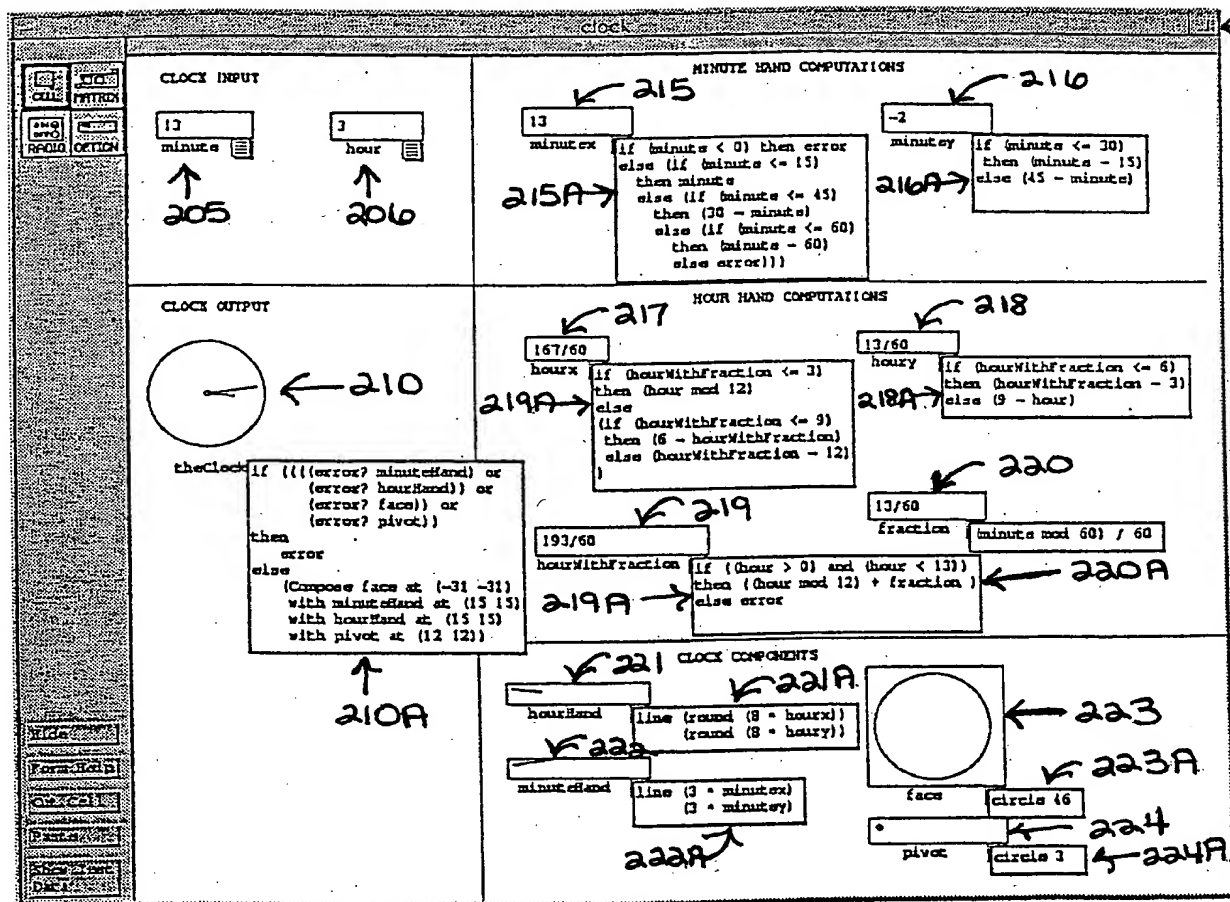 clock
CELL MATRIX
RADIO OPTION
CLOCK INPUT
13
minute
3
hour
205
206
MINUTE HAND COMPUTATIONS
215
13
minutex
215A
if (minute < 0) then error
else (if (minute <= 15)
then minute
else (if (minute <= 45)
then (30 - minute)
else (if (minute <= 60)
then (minute - 60)
else error)))
216
-2
minutey
216A
if (minute <= 30)
then (minute - 15)
else (45 - minute)
CLOCK OUTPUT
210
theClock
if ((((error? minuteHand) or
(error? hourHand)) or
(error? face)) or
(error? pivot))
then
error
else
(Compose face at (-31 -31)
with minuteHand at (15 15)
with hourHand at (15 15)
with pivot at (12 12))
210A
HOUR HAND COMPUTATIONS
217
167/60
hourx
219A
if (hourWithFraction <= 3)
then (hour mod 12)
else
(if (hourWithFraction <= 9)
then (6 - hourWithFraction)
else (hourWithFraction - 12)
)
218
13/60
houry
218A
if (hourWithFraction <= 6)
then (hourWithFraction - 3)
else (9 - hour)
219
193/60
hourWithFraction
219A
if ((hour > 0) and (hour < 13))
then ((hour mod 12) + fraction )
else error
220
13/60
fraction
(minute mod 60) / 60
220A
CLOCK COMPONENTS
221
hourHand
221A
line (round (8 * hourx))
(round (8 * houry))
222
minuteHand
line (3 * minutex)
(3 * minutey)
222A
223
face
223A
circle 46
224
pivot
circle 3
224A
Hide
Form Help
Paste